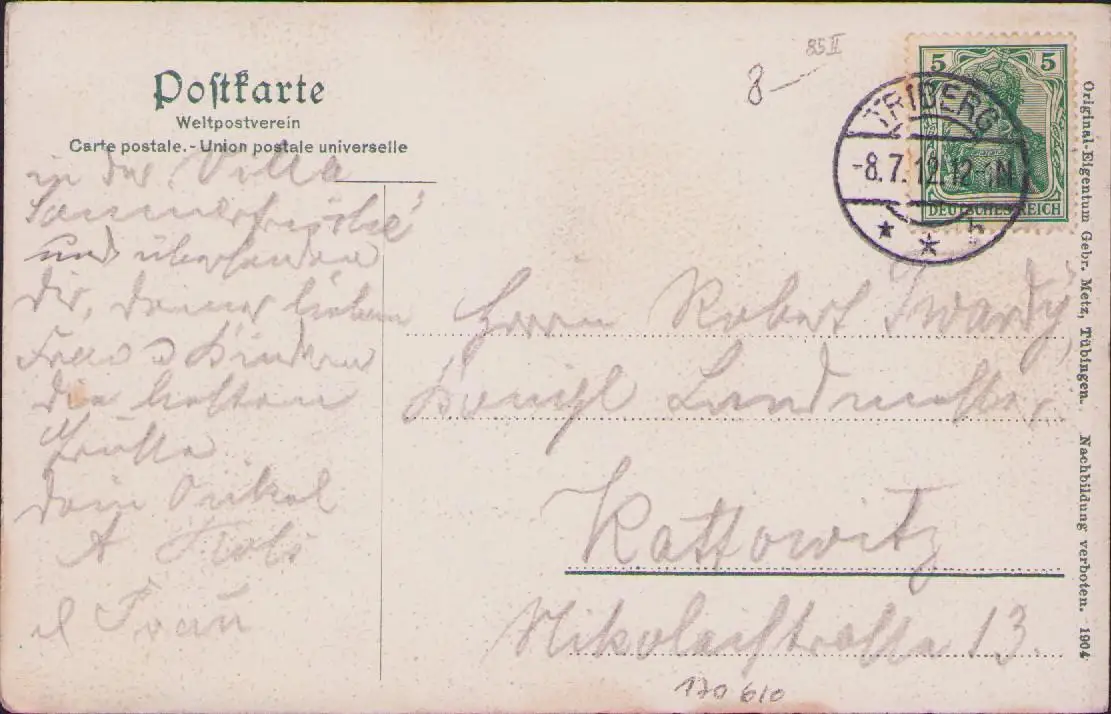 Postkarte
Weltpostverein
Carte postale.-Union postale universelle
8—
85 II
5 5
TRIBERG
-8.7.12.12-1N
DEUTSCHES REICH
in der Villa
Sommerfrische
und übersenden
Dir, Deiner lieben
Frau u Kindern
die besten
Grüße
Dein Onkel
A
u Frau
Herrn Robert Twardy,
Königl Landmesser,
Kattowitz
Nikolaistrasse 13.
170 610
Original-Eigentum Gebr. Metz, Tübingen. Nachbildung verboten. 1904